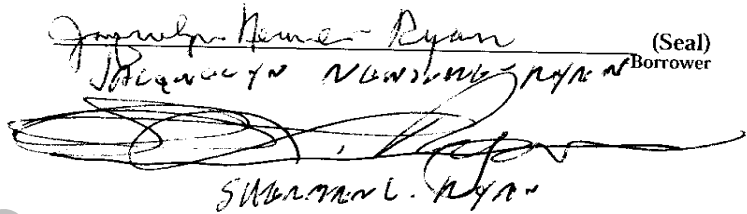 Jacquelyn Newsome-Ryan (Seal)
JACQUELYN NEWSOME-RYAN Borrower
S. L. Ryan
SHERMAN L. RYAN